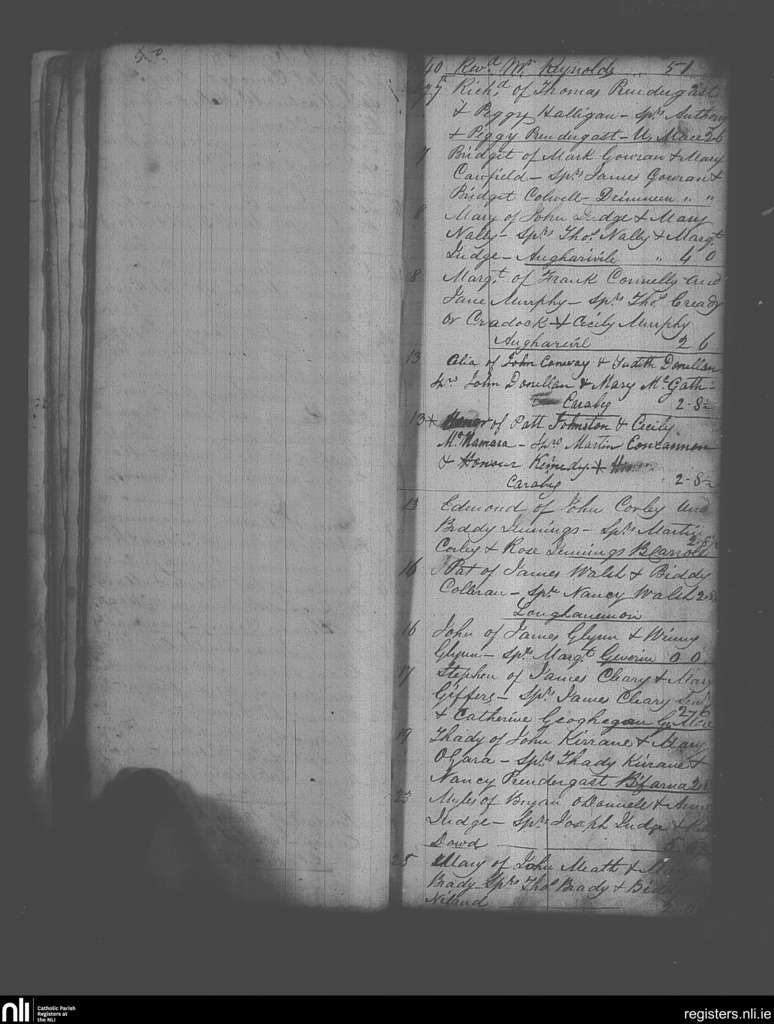 40 Revd Mr Reynolds 51
Richd of Thomas Prendergast
& Peggy Halligan - Sprs Anthony
& Peggy Prendergast - U. Mace 2 6
7 Bridget of Mark Gowran & Mary
Cawfield - Sprs James Gowran &
Bridget Colwell - Drimneen " "
8 Mary of John Judge & Mary
Nally - Sprs Thos Nally & Margt
Judge - Augharivile " 4 0
8 Margt of Frank Connelly and
Jane Murphy - Sprs Thos Cready
or Cradock & Cecily Murphy
Augharivil 2 6
13 Celia of John Conway & Judith Donellan
Sprs John Donellan & Mary McGath
Caraby 2-8½
13 Honor of Patt Johnston & Cecily
McNamara - Sprs Martin Concannon
& Honour Kennedy
Caraby 2-8½
13 Edmond of John Corley and
Biddy Jennings - Sprs Martin
Corley & Rose Jennings Bcarroll
16 Pat of James Walsh & Biddy
Colleran - Spr Nancy Walsh
Loughanemon
16 John of James Glynn & Winny
Glynn - Spr Margt Geverin 0 0
17 Stephen of James Cleary & Mary
Giffers - Sprs James Cleary
& Catherine Geoghegan
19 Thady of John Kirrane & Mary
OGara - Sprs Thady Kirrane &
Nancy Prendergast Bfarna
23 Myles of Bryan ODonnell & Anne
Judge - Sprs Joseph Judge &
Dowd
25 Mary of John Meath &
Brady Sprs Thos Brady &
Niland
nli Catholic Parish
Registers at
the NLI
registers.nli.ie